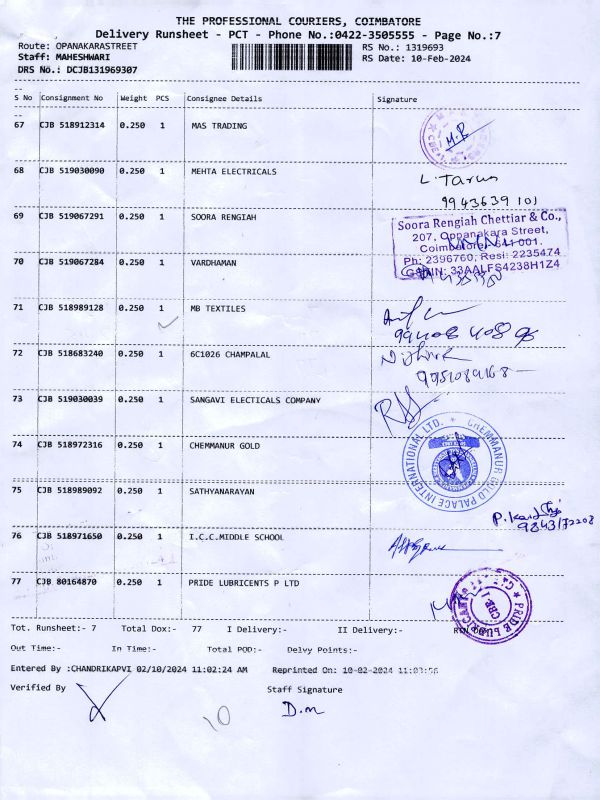 THE PROFESSIONAL COURIERS, COIMBATORE
Delivery Runsheet - PCT - Phone No.:0422-3505555 - Page No.:7
Route: OPANAKARASTREET RS No.: 1319693
Staff: MAHESHWARI RS Date: 10-Feb-2024
DRS No.: DCJB131969307
S No Consignment No Weight PCS Consignee Details Signature
67 CJB 518912314 0.250 1 MAS TRADING
M.R
68 CJB 519030090 0.250 1 MEHTA ELECTRICALS
L. Tarun
9943639101
69 CJB 519067291 0.250 1 SOORA RENGIAH
Soora Rengiah Chettiar & Co.,
207, Oppanakara Street,
Coimbatore - 641 001.
Ph: 2396760, Resi: 2235474
GSTIN: 33AALFS4238H1Z4
70 CJB 519067284 0.250 1 VARDHAMAN
71 CJB 518989128 0.250 1 MB TEXTILES
72 CJB 518683240 0.250 1 6C1026 CHAMPALAL
73 CJB 519030039 0.250 1 SANGAVI ELECTICALS COMPANY
74 CJB 518972316 0.250 1 CHEMMANUR GOLD
CHEMMANUR GOLD PALACE INTERNATIONAL LTD.
75 CJB 518989092 0.250 1 SATHYANARAYAN
76 CJB 518971650 0.250 1 I.C.C.MIDDLE SCHOOL
77 CJB 80164870 0.250 1 PRIDE LUBRICENTS P LTD
Tot. Runsheet:- 7 Total Dox:- 77 I Delivery:- II Delivery:-
Out Time:- In Time:- Total POD:- Delvy Points:-
Entered By :CHANDRIKAPVI 02/10/2024 11:02:24 AM Reprinted On: 10-02-2024
Verified By Staff Signature
10 D.m